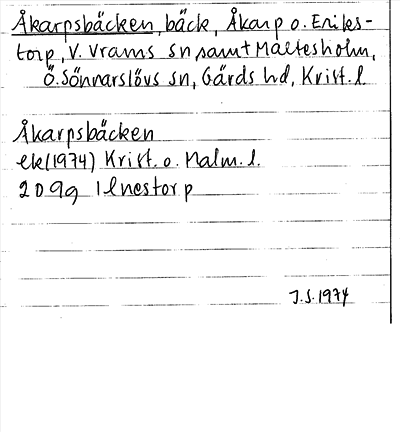 Åkarpsbäcken, bäck, Åkarp o. Eriks-
torp, V. Vrams sn samt Maltesholm,
Ö. Sönnarslövs sn, Gärds hd, Krist. l.
Åkarpsbäcken
ek (1974) Krist. o. Malm. l.
2 D 9g Ilnestorp
J.S. 1974